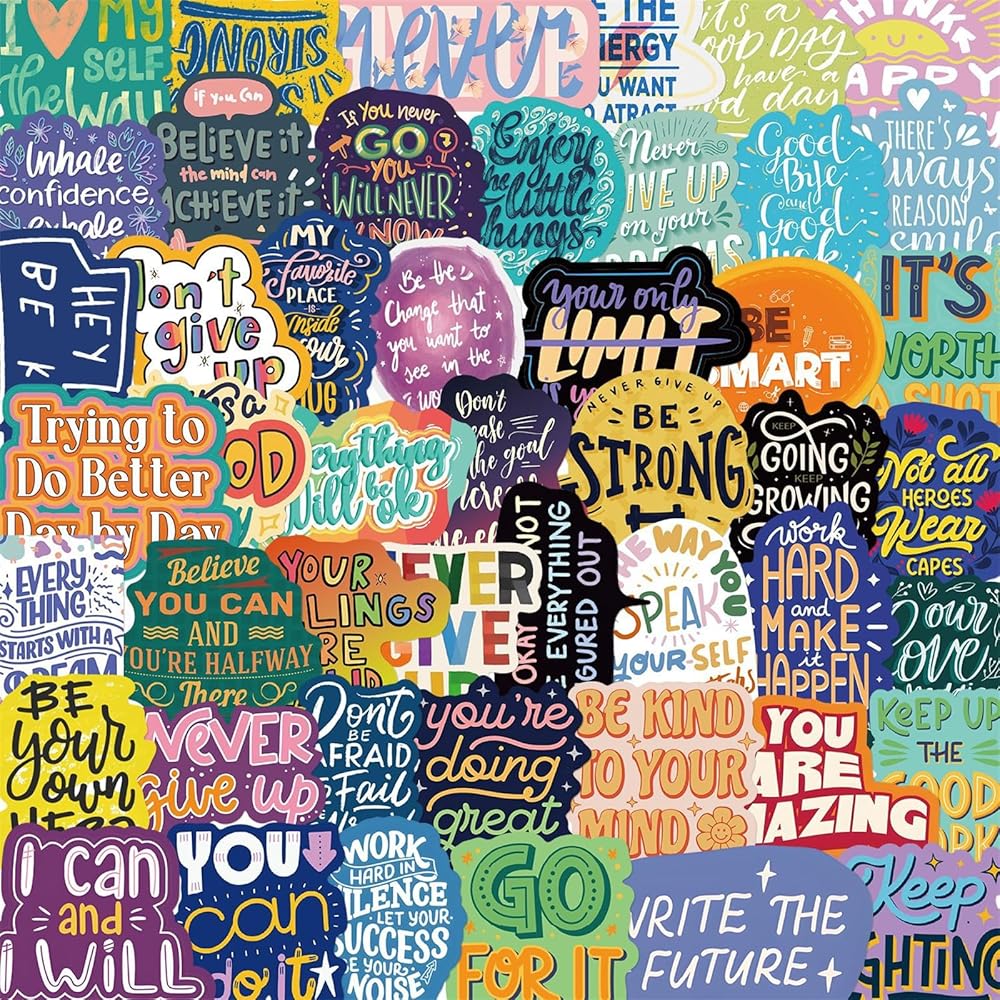 I MY
SELF
the way
STRONG
never
GIVE UP
THE
ENERGY
U WANT
O ATRACT
it's a
GOOD DAY
to have a
good day
THINK
HAPPY
Inhale
confidence,
exhale
if you can
BELIEVE it
the mind can
ACHIEVE it
If You never
GO
YOU
WILL NEVER
KNOW
Enjoy
the little
things
Never
GIVE UP
on your
DREAMS
Good
Bye
and
Good
luck
THERE'S
always
REASON
smile
HEY
BE K
Don't
give
up
MY
favorite
PLACE
IS
inside
your
HUG
Be the
Change that
you want to
see in the
a wo
your only
LIMIT
is yo
BE
SMART
IT'S
WORTH
A SHOT
Trying to
Do Better
Day by Day
it's a
GOOD
Everything
will be
ok
Don't
ease
the goal
NEVER GIVE UP
BE
STRONG
KEEP
GOING
KEEP
GROWING
Not all
HEROES
Wear
CAPES
EVERY
THING
STARTS WITH A
DREAM
Believe
YOU CAN
AND
YOU'RE HALFWAY
There
YOUR
LINGS
RE
LID
EVER
GIVE
UP
OKAY NOT
E EVERYTHING
GURED OUT
THE WAY YOU
SPEAK
YOUR-SELF
Work
HARD
and
MAKE
it
HAPPEN
your
Love
BE
your
own
HERO
NEVER
give up
Don't
BE
AFRAID
Fail
you're
doing
great
BE KIND
TO YOUR
MIND
YOU
ARE
AMAZING
KEEP UP
THE
GOOD
ORK
I can
and
I WILL
YOU
can
do it
WORK
HARD IN
SILENCE
LET YOUR
SUCCESS
BE YOUR
NOISE
GO
FOR IT
WRITE THE
FUTURE
Keep
GHTING